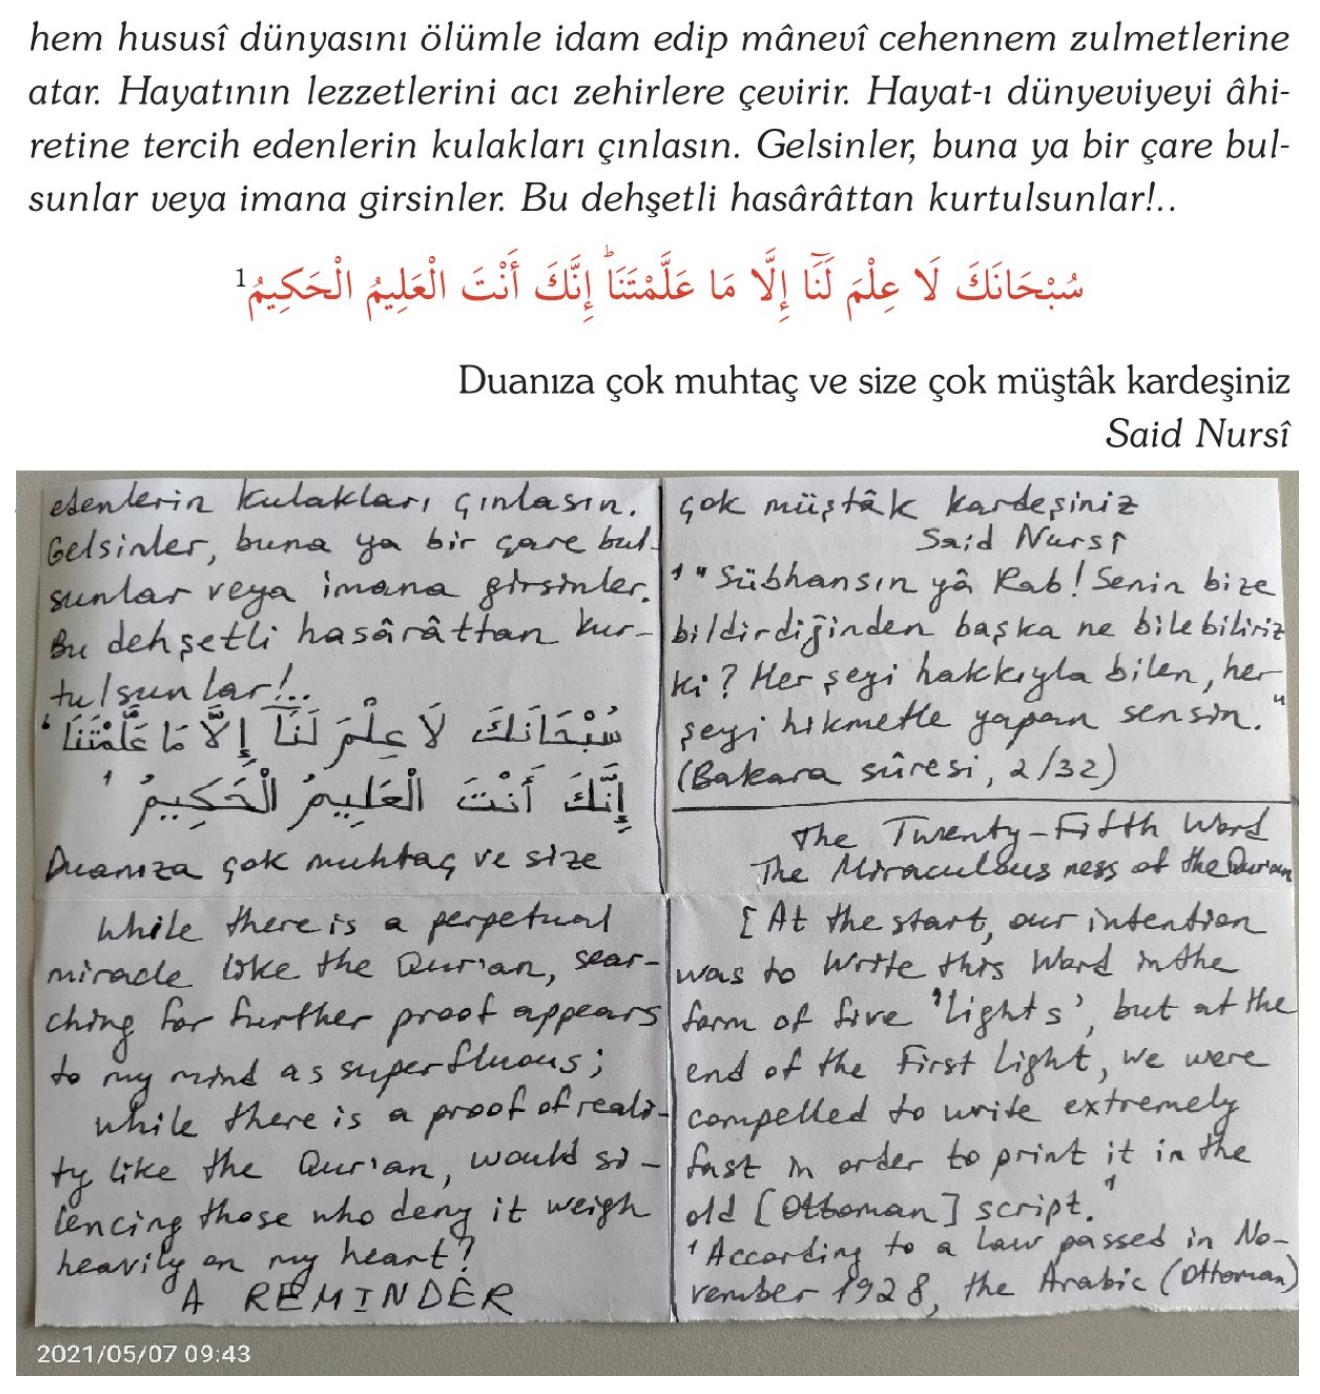 hem hususî dünyasını ölümle idam edip mânevî cehennem zulmetlerine
atar. Hayatının lezzetlerini acı zehirlere çevirir. Hayat-ı dünyeviyeyi âhi-
retine tercih edenlerin kulakları çınlasın. Gelsinler, buna ya bir çare bul-
sunlar veya imana girsinler. Bu dehşetli hasârâttan kurtulsunlar!..
سُبْحَانَكَ لَا عِلْمَ لَنَٓا إِلَّا مَا عَلَّمْتَنَاۜ إِنَّكَ أَنْتَ الْعَلِيمُ الْحَكِيمُ1
Duanıza çok muhtaç ve size çok müştâk kardeşiniz
Said Nursî
edenlerin kulakları çınlasın.
Gelsinler, buna ya bir çare bul-
sunlar veya imana girsinler.
Bu dehşetli hasârâttan kur-
tulsunlar!..
سُبْحَانَكَ لَا عِلْمَ لَنَٓا إِلَّا مَا عَلَّمْتَنَاۜ
إِنَّكَ أَنْتَ الْعَلِيمُ الْحَكِيمُ 1
Duanıza çok muhtaç ve size
çok müştâk kardeşiniz
Said Nursî
1 "Sübhansın yâ Rab! Senin bize
bildirdiğinden başka ne bilebiliriz
ki? Her şeyi hakkıyla bilen, her
şeyi hikmetle yapan sensin."
(Bakara sûresi, 2/32)
The Twenty-Fifth Word
The Miraculousness of the Qur'an
While there is a perpetual
miracle like the Qur'an, sear-
ching for further proof appears
to my mind as superfluous;
while there is a proof of reali-
ty like the Qur'an, would si-
lencing those who deny it weigh
heavily on my heart?
A REMINDER
[At the start, our intention
was to write this Word in the
form of five 'lights', but at the
end of the First Light, we were
compelled to write extremely
fast in order to print it in the
old [Ottoman] script.1
1 According to a law passed in No-
vember 1928, the Arabic (Ottoman)
2021/05/07 09:43